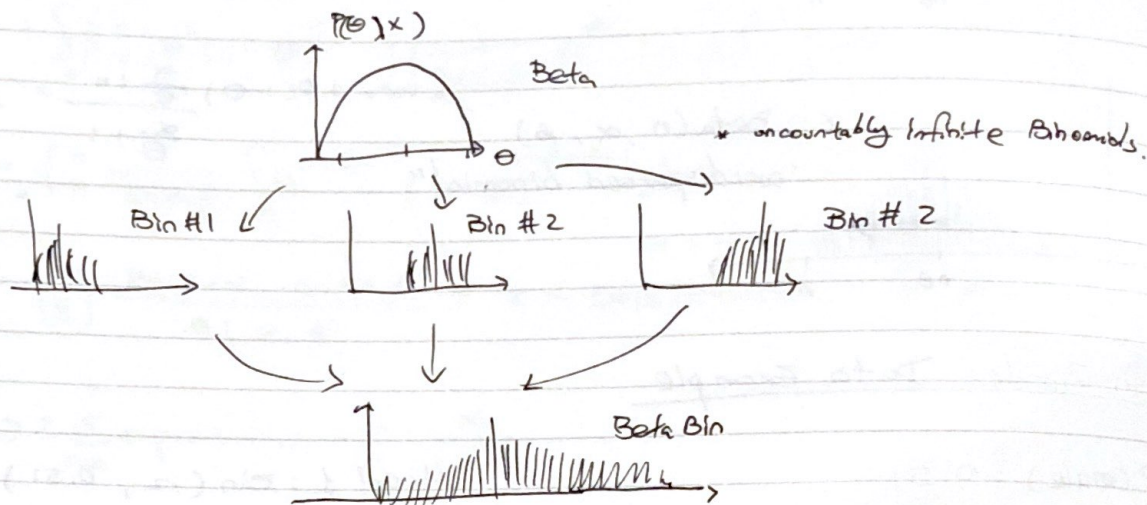 P(θ|x)
Beta
θ
* uncountably infinite Binomials.
Bin #1
Bin # 2
Bin # 2
Beta Bin